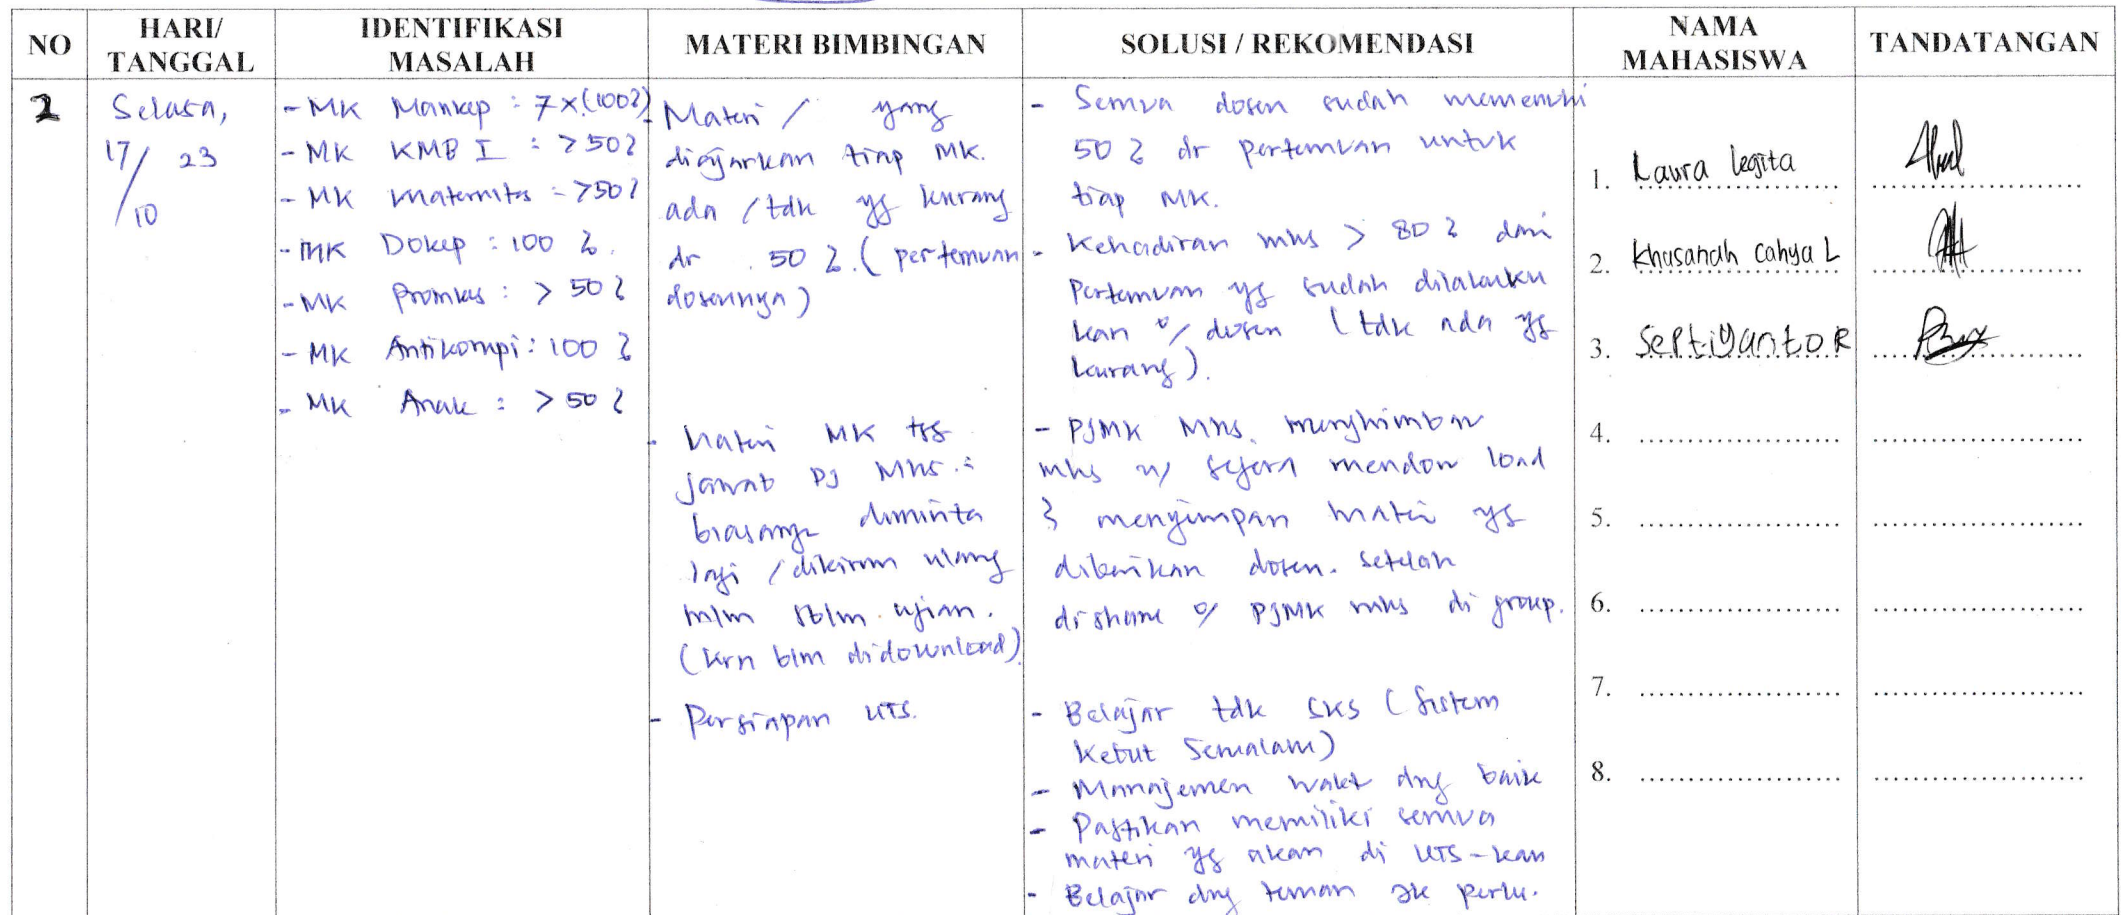 NO
HARI/
TANGGAL
IDENTIFIKASI
MASALAH
MATERI BIMBINGAN
SOLUSI / REKOMENDASI
NAMA
MAHASISWA
TANDATANGAN
2
Selasa,
17/ 23
/10
- MK Mankep : 7x (100%)
- MK KMB I : >50%
- MK Maternitas : >50%
- MK Dokep : 100 %.
- MK Promkes : > 50 %
- MK Antikorupsi : 100 %
- MK Anak : > 50 %
- Materi / yang
diajarkan tiap MK.
ada / tdk yg kurang
dr 50 %. ( pertemuan
dosennya )
- Materi MK
jawab PJ Mhs. :
biasanya diminta
lagi / dikirim ulang
mlm sblm ujian.
(krn blm didownload).
- Persiapan UTS.
- Semua dosen sudah memenuhi
50 % dr pertemuan untuk
tiap MK.
- Kehadiran mhs > 80 % dari
Pertemuan yg sudah dilakuku
kan o/ dosen ( tdk ada yg
kurang ).
- PJMK Mhs. menghimbau
mhs u/ segera mendown load
& menyimpan materi yg
diberikan dosen. setelah
dishare o/ PJMK mhs di group.
- Belajar tdk SKS ( Sistem
Kebut Semalam )
- Manajemen wakt dng baik
- Pastikan memiliki semua
materi yg akan di UTS-kan
- Belajar dng teman jk perlu.
1. Laura legita
2. Khasanah Cahya L
3. Septiyanto R
4.
5.
6.
7.
8.